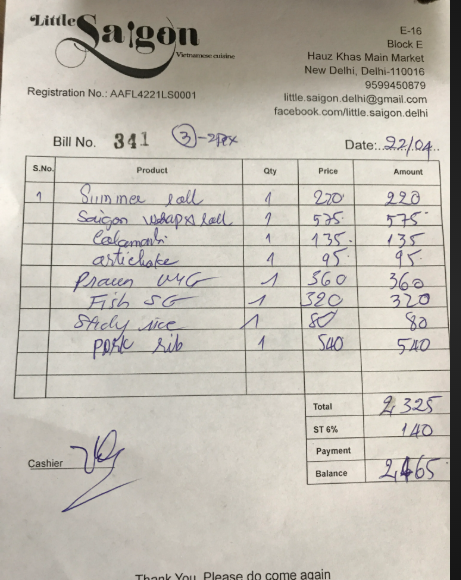 Little Saigon
Vietnamese cuisine
E-16
Block E
Hauz Khas Main Market
New Delhi, Delhi-110016
9599450879
little.saigon.delhi@gmail.com
facebook.com/little.saigon.delhi
Registration No.: AAFL4221LS0001
Bill No. 341 3 Date: 22/04
S.No. Product Qty Price Amount
1 Summer roll 1 220 220
Saigon roll 1 575 575
Calamansi 1 135 135
artichoke 1 95 95
Prawn 1 360 360
Fish SG 1 320 320
rice 1 80 80
pork rib 1 540 540
Total 2,325
ST 6% 140
Payment
Balance 2,465
Cashier
Thank You, Please do come again